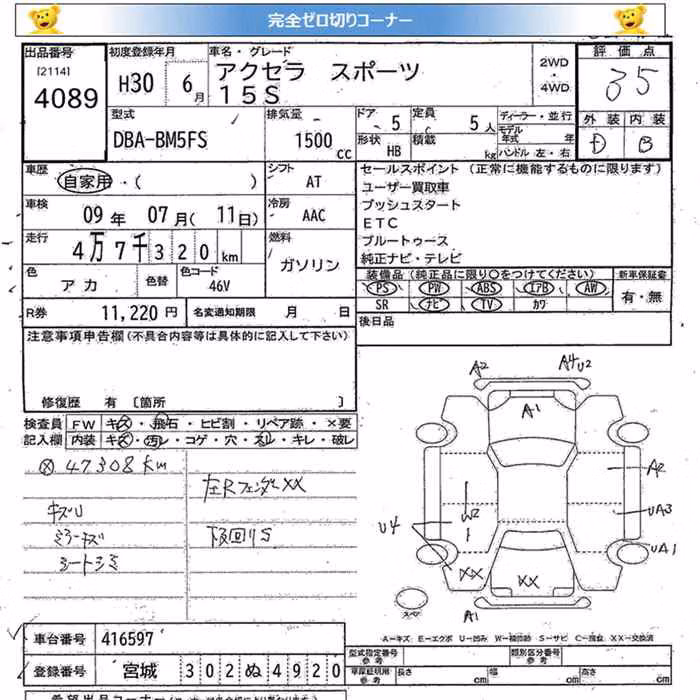 完全ゼロ切りコーナー
出品番号
[2114]
4089
初度登録年月
H30 6月
車名・グレード
アクセラ スポーツ
15S
2WD
・
4WD
評価点
35
型式
DBA-BM5FS
排気量
1500 cc
ドア 5
形状 HB
定員 5人
積載 kg
ディーラー・並行
モデル年式 年
ハンドル 左・右
外装 内装
D B
車歴
自家用・( )
シフト AT
車検
09年 07月(11日)
冷房 AAC
走行
4万7千320km
燃料
ガソリン
色 アカ
色替
色コード 46V
R券 11,220円
名変通知期限 月 日
セールスポイント (正常に機能するものに限ります)
ユーザー買取車
プッシュスタート
ETC
ブルートゥース
純正ナビ・テレビ
装備品(純品品に限り○をつけてください)
新車保証書
PS PW ABS エアB AW
SR ナビ TV カワ
有・無
後日品
注意事項申告欄(不具合内容等は具体的に記入して下さい)
修復歴 有〔箇所 〕
検査員記入欄
FW キズ・飛石・ヒビ割・リペア跡・×要
内装 キズ・汚レ・コゲ・穴・スレ・キレ・破レ
47308km
左Rフェンダー××
キズU
ミラーキズ
シートシミ
下回りS
A2
A4 U2
A1
A2
UA3
UA1
W2
U4
XX
XX
A1
スペア
A-キズ E-エクボ U-凹み W-補修跡 S-サビ C-腐食 XX-交換済
車台番号 416597
登録番号 宮城 302ぬ4920
型式指定番号 参考
類別区分番号 参考
車庫証明用 参考
長さ cm 幅 cm 高さ cm
希望出品コーナー